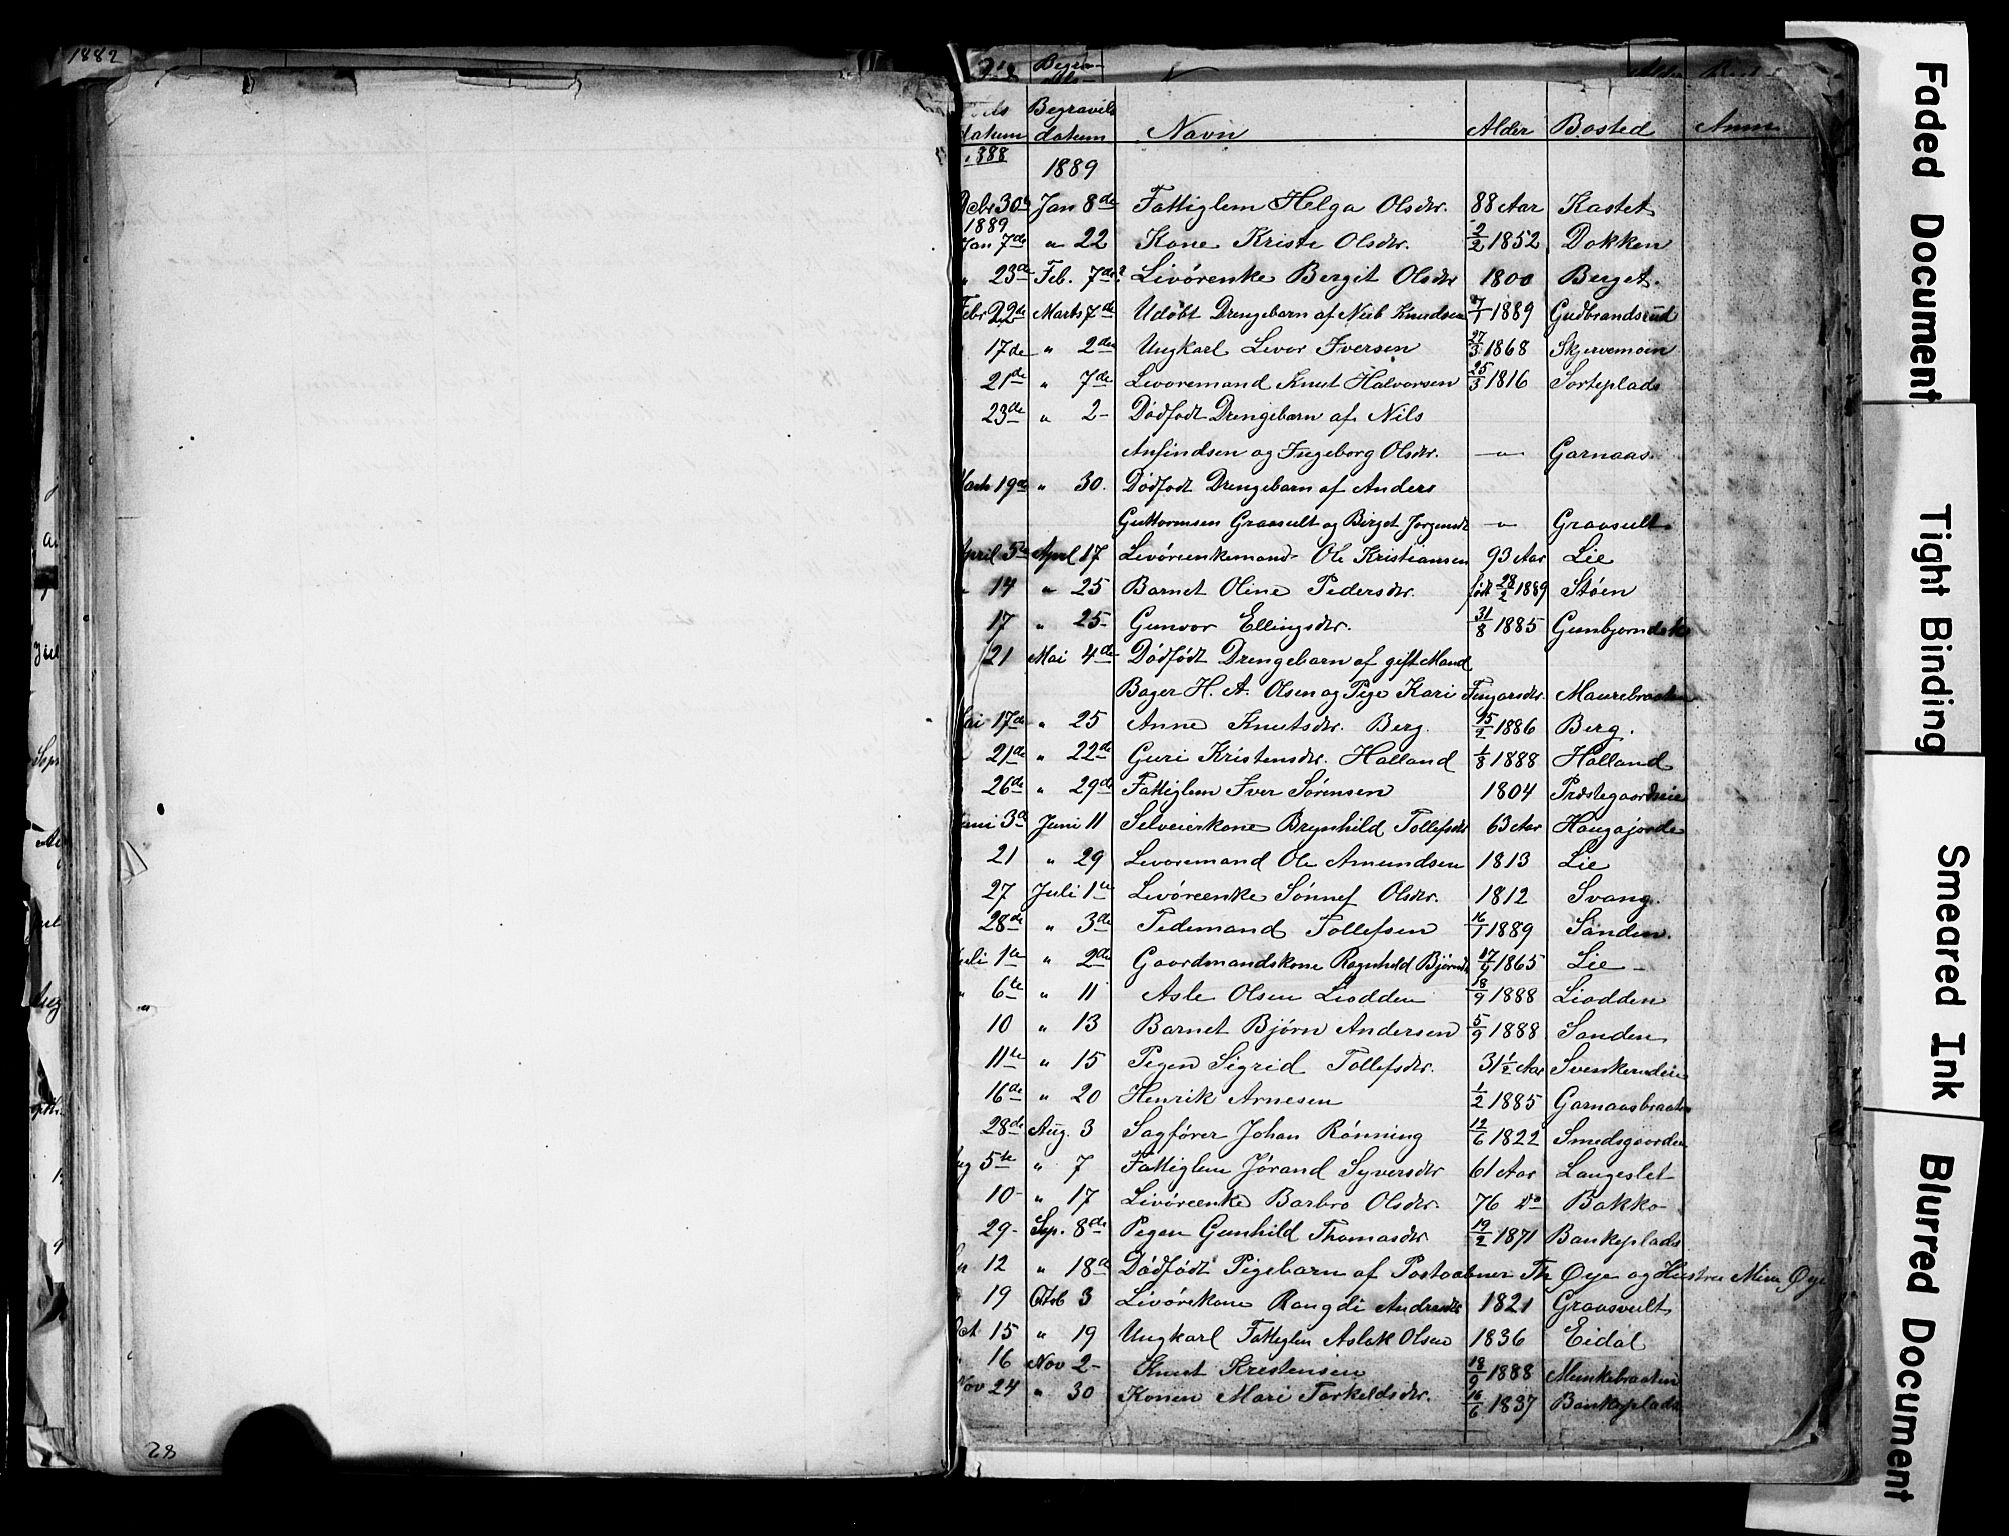 1882
Begra-
Døds Begravels
datum datum Navn Alder Bosted Anm
1888 1889
Debr 30 Jan 8de Fattiglem Helga Olsdtr. 88 Aar Kastet
1889
Jan 7de " 22 Kone Kristi Olsdtr. 2/2 1852 Dokken
" 23de Feb. 7de? Livørenke Bergit Olsdtr 1800 Berget.
Febr 22de Marts 7de Udøbt Drengebarn af Nub Knudsen 1889 Gudbrandsrud
17de " 2den Ungkarl Levor Iversen 27/3 1868 Skjervemoen
21de " 7de Levoremand Knut Halvorsen 25/3 1816 Sorteplads
23de " 2- Dødfødt Drengebarn af Nils
Anfindsen og Ingeborg Olsdtr. — " — Garnaas.
Marts 19de " 30. Dødfødt Drengebarn af Anders
Guttormsen Graasult og Birget Jorgensdt — " — Graasult
April 5te April 17 Livørenkemand Ole Kristiansen 93 Aar Lie
" 14 " 25 Barnet Oline Pedersdtr. født 28/2 1889 Støen
17 " 25- Gunvor Ellingsdtr. 31/8 1885
21 Mai 4de Dødfødt Drengebarn af gift Mand
Bager H. A. Olsen og Pige Kari Maurebraaten
Mai 17de " 25 Anne Knutsdtr. Berg. 1886 Berg.
21de " 22de Guri Kristensdtr. Halland 1/8 1888 Halland
26de " 29de Fattiglem Iver Sørensen 1804
Juni 3de Juni 11 Selveierkone Brynhild Tollefsdtr 63 Aar Haugajorde
21 " 29 Levoremand Ole Amundsen 1813 Lie
27 Juli 1te Livøreenke Sønnef Olsdtr. 1812 Svang.
28de " 3de Pedemand Tollefsen 16/1 1889 Sanden.
Juli 1te " 2de Gaardmandskone Ragnhild Bjørnsdt 1865 Lie -
" 6te " 11 Asle Olsen Liodden 18/9 1888 Liodden
10 " 13 Barnet Bjørn Andersen 5/9 1888 Sanden
11te " 15 Pigen Sigrid Tollefsdtr. 31 1/2 Aar
16de " 20 Henrik Arnesen 1/2 1885 Garnaasbraaten
28de Aug. 3 Sagfører Johan Rønning 12/6 1822 Smedsgaarden
Aug 5te " 7 Fattiglem Jørand Syversdtr 61 Aar Langeslet
10- " 17 Livøreenke Barbro Olsdtr. 76 do Bakko
29- Sep. 8de Pigen Gunhild Thomasdtr 19/2 1871 Bankeplads
" 12 " 18de Dødfødt Pigebarn af Postaabner Th Øye og Hustru Mina Øye
19 Octob 3 Livørekone Rangdi Andersdtr 1821 Graasvult
Oct 15 " 19 Ungkarl Fattiglem Aslak Olsen 1836 Eidal
" 16 Nov 2- Knut Kristensen 18/9 1888 Munkebraaten
Nov 24 " 30 Konen Mari Torkeldsdtr. 16/6 1837 Bankeplads
28
Faded Document
Tight Binding
Smeared Ink
Blurred Document